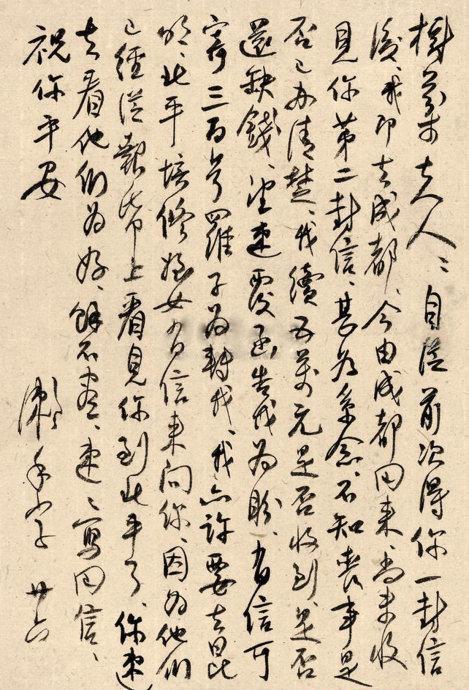 夫人：自從前次得你一封信
後、我即去成都、今由成都回來、尚未收
見你第二封信、甚為系念、不知喪事是
否已办清楚、我續五萬元是否收到、是否
還缺錢、望速覆函告我為盼、有信可
寄三百号羅子為轉我、我亦許要去昆
明、北平培修姪女有信來問你、因為他們
已經從報帋上看見你到北平了、你速
去看他們為好、餘不盡、速々寫回信、
祝你平安
廿六